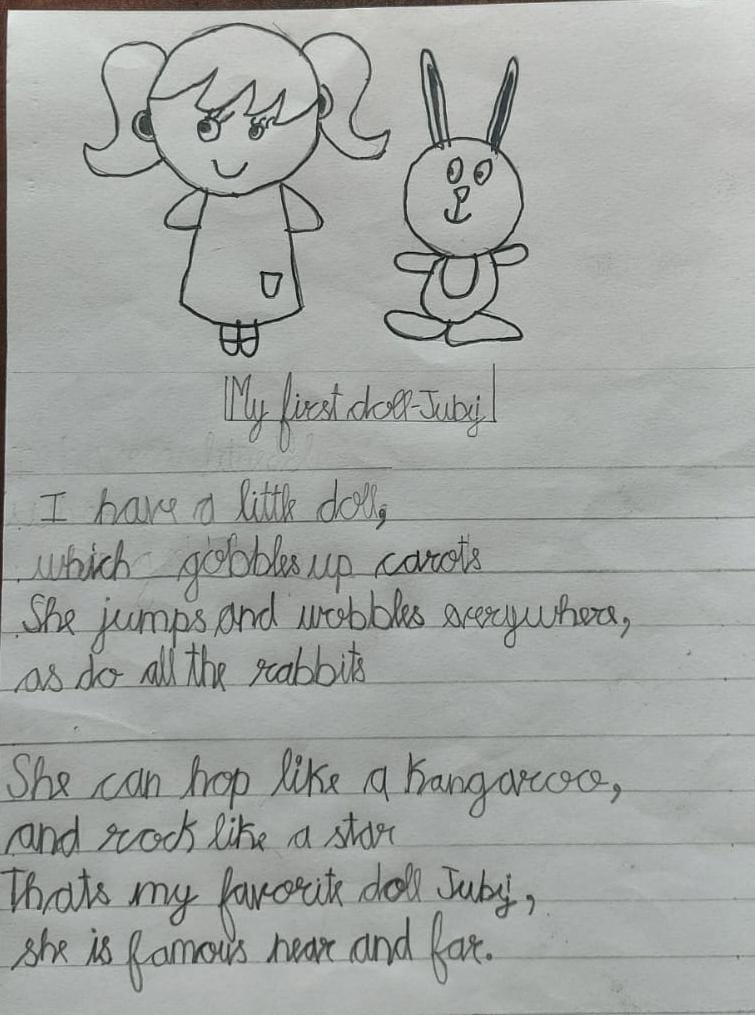 My first doll-Juby
I have a little doll,
which gobbles up carots
She jumps and wobbles everywhere,
as do all the rabbits
She can hop like a Kangaroo,
and rock like a star
Thats my favorite doll Juby,
she is famous near and far.